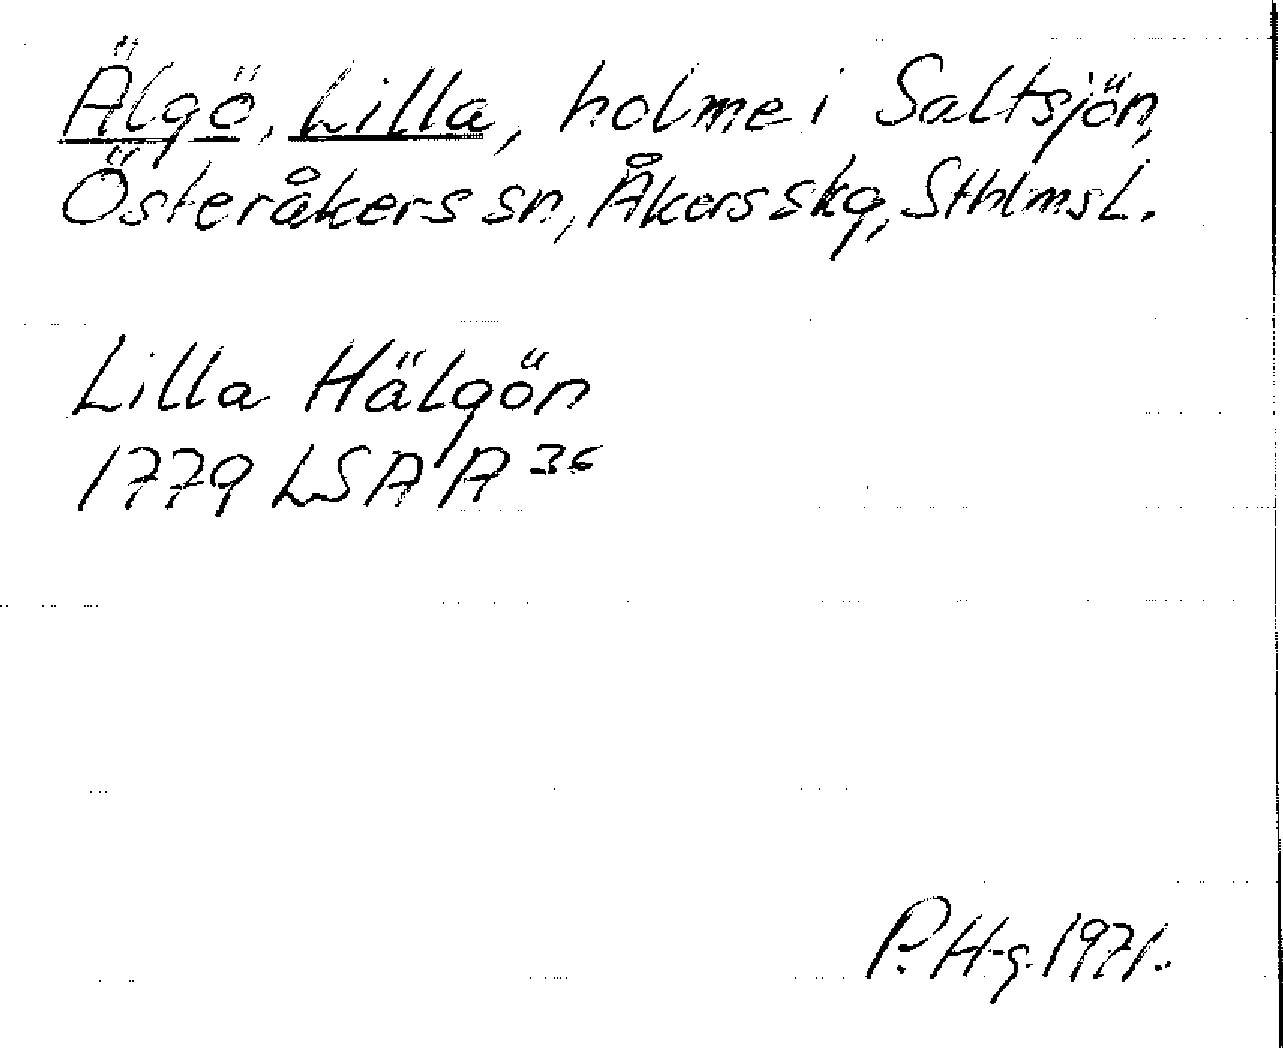 Älgö, Lilla, holme i Saltsjön,
Österåkers sn, Åkers skg, Sthlms L.
Lilla Hälgön
1779 LSA A 36
P. H-g. 1971.